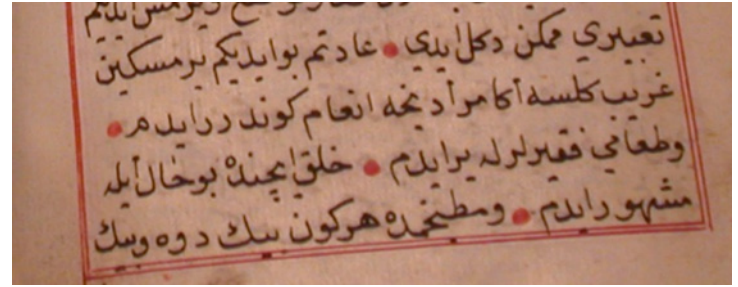 ويرمش ايديم
تعبيري ممكن دكل ايدي ● عادتم بو ايديكم بر مسكين
غريب كلسه آكا مرادنجه انعام كوندررايدم ●
وطعامي فقيرلرله يرايدم ● خلق ايچنده بو حال ايله
مشهور ايدم ● ومطبخمده هركون بيك دوه وبيك